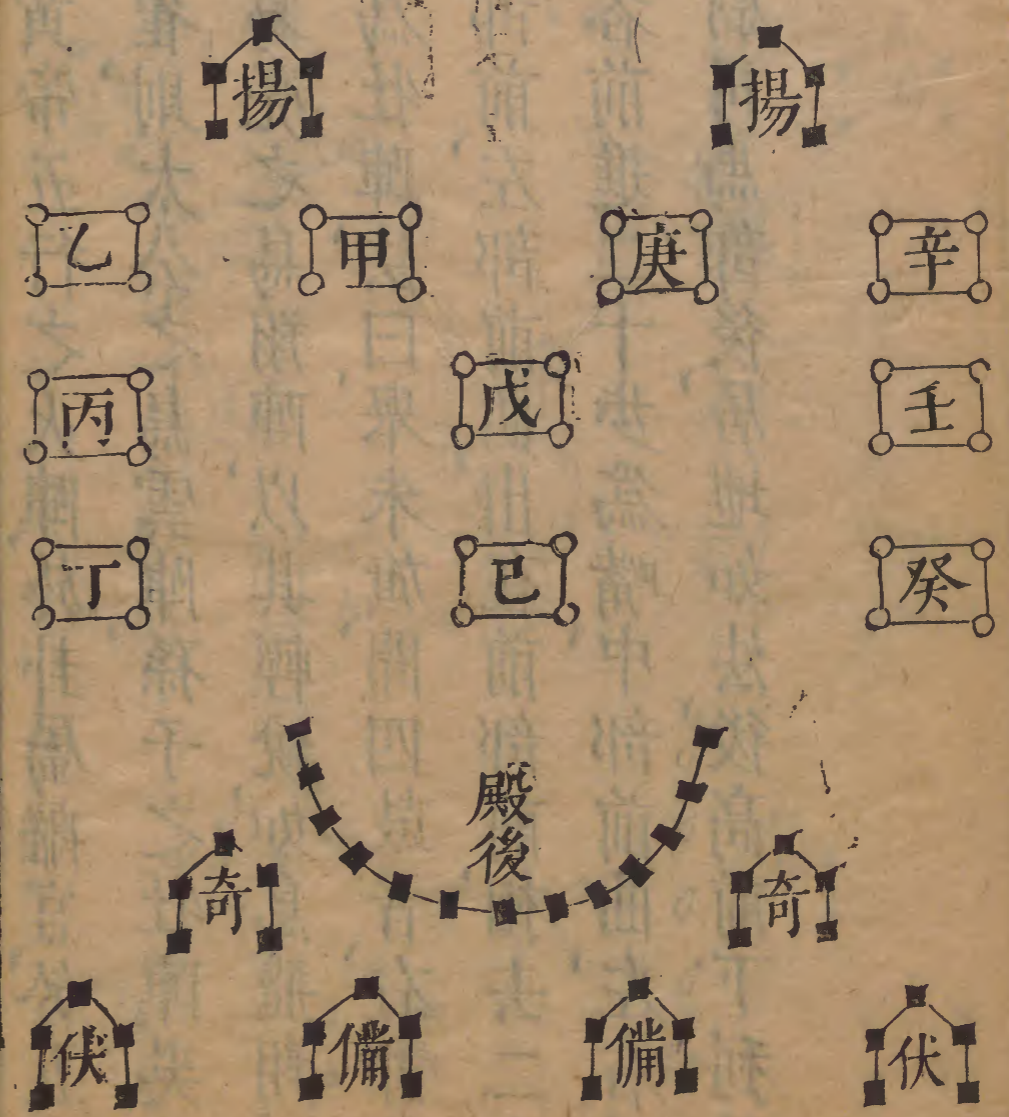 揚 揚
乙 甲 庚 辛
丙 戊 壬
丁 已 癸
殿後
奇 奇
伏 備 備 伏